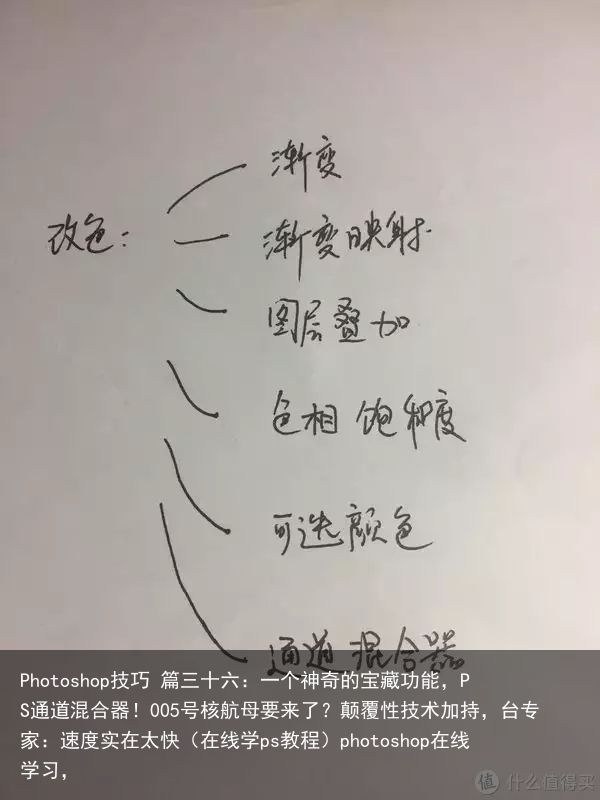 渐变
改色：
渐变映射
图层叠加
色相 饱和度
可选颜色
通道混合器
Photoshop技巧 篇三十六：一个神奇的宝藏功能，P
S通道混合器！005号核航母要来了？颠覆性技术加持，台专
家：速度实在太快（在线学ps教程）photoshop在线
学习，
值 什么值得买